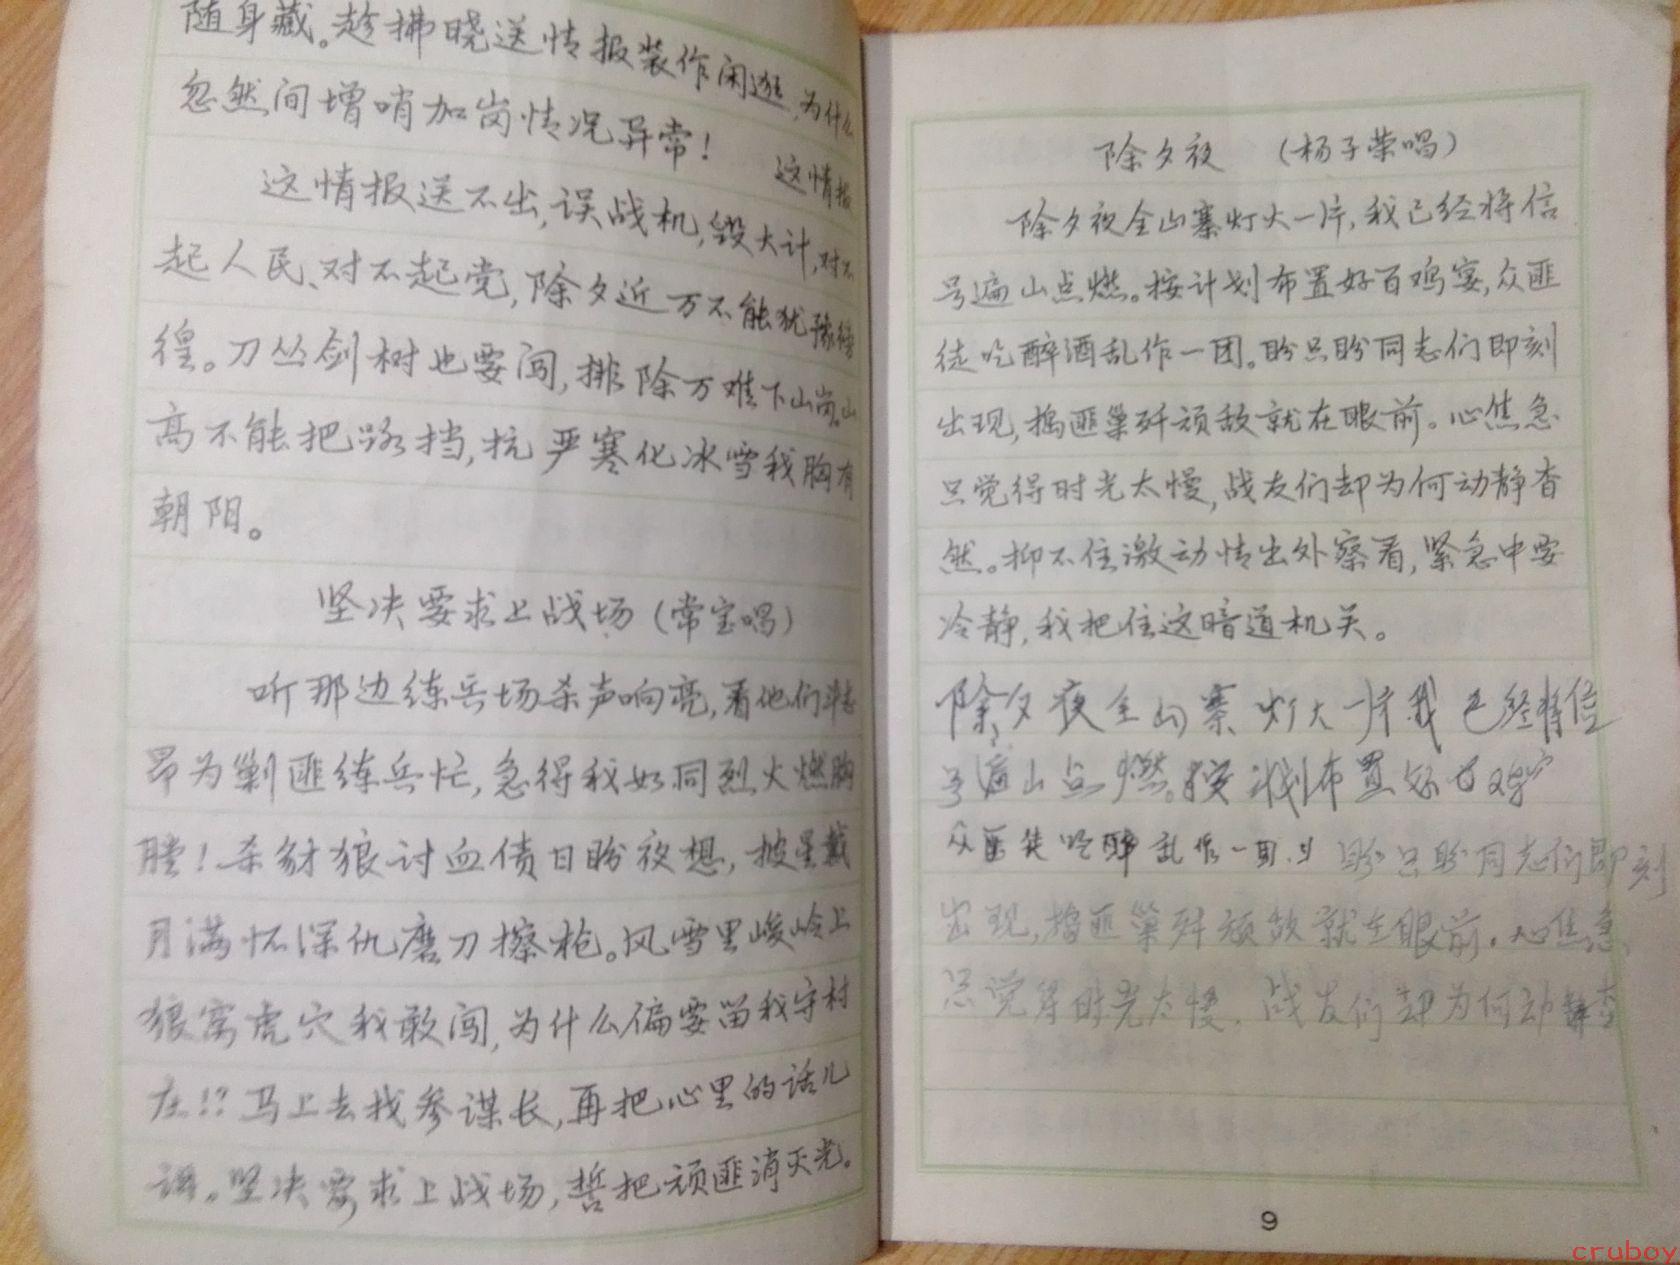 随身藏。趁拂晓送情报装作闲逛,为什么
忽然间增哨加岗情况异常!
这情报
这情报送不出,误战机,毁大计,对不
起人民、对不起党,除夕近万不能犹豫徬
徨。刀丛剑树也要闯,排除万难下山岗。山
高不能把路挡,抗严寒化冰雪我胸有
朝阳。
坚决要求上战场(常宝唱)
听那边练兵场杀声响亮,看他们斗志
昂为剿匪练兵忙,急得我如同烈火燃胸
膛!杀豺狼讨血债日盼夜想,披星戴
月满怀深仇磨刀擦枪。风雪里峻岭上
狼窝虎穴我敢闯,为什么偏要留我守村
庄!?马上去找参谋长,再把心里的话儿
讲。坚决要求上战场,誓把顽匪消灭光。
除夕夜 (杨子荣唱)
除夕夜全山寨灯火一片,我已经将信
号遍山点燃。按计划布置好百鸡宴,众匪
徒吃醉酒乱作一团。盼只盼同志们即刻
出现,捣匪巢歼顽敌就在眼前。心焦急
只觉得时光太慢,战友们却为何动静杳
然。抑不住激动情出外察看,紧急中要
冷静,我把住这暗道机关。
除夕夜全山寨灯火一片我已经将信
号遍山点燃。按计划布置好百鸡
众匪徒吃醉乱作一团. 盼只盼同志们即刻
出现,捣匪巢歼顽敌就在眼前.心焦急,
觉得时光太慢.战友们却为何动静杳
9
cruboy